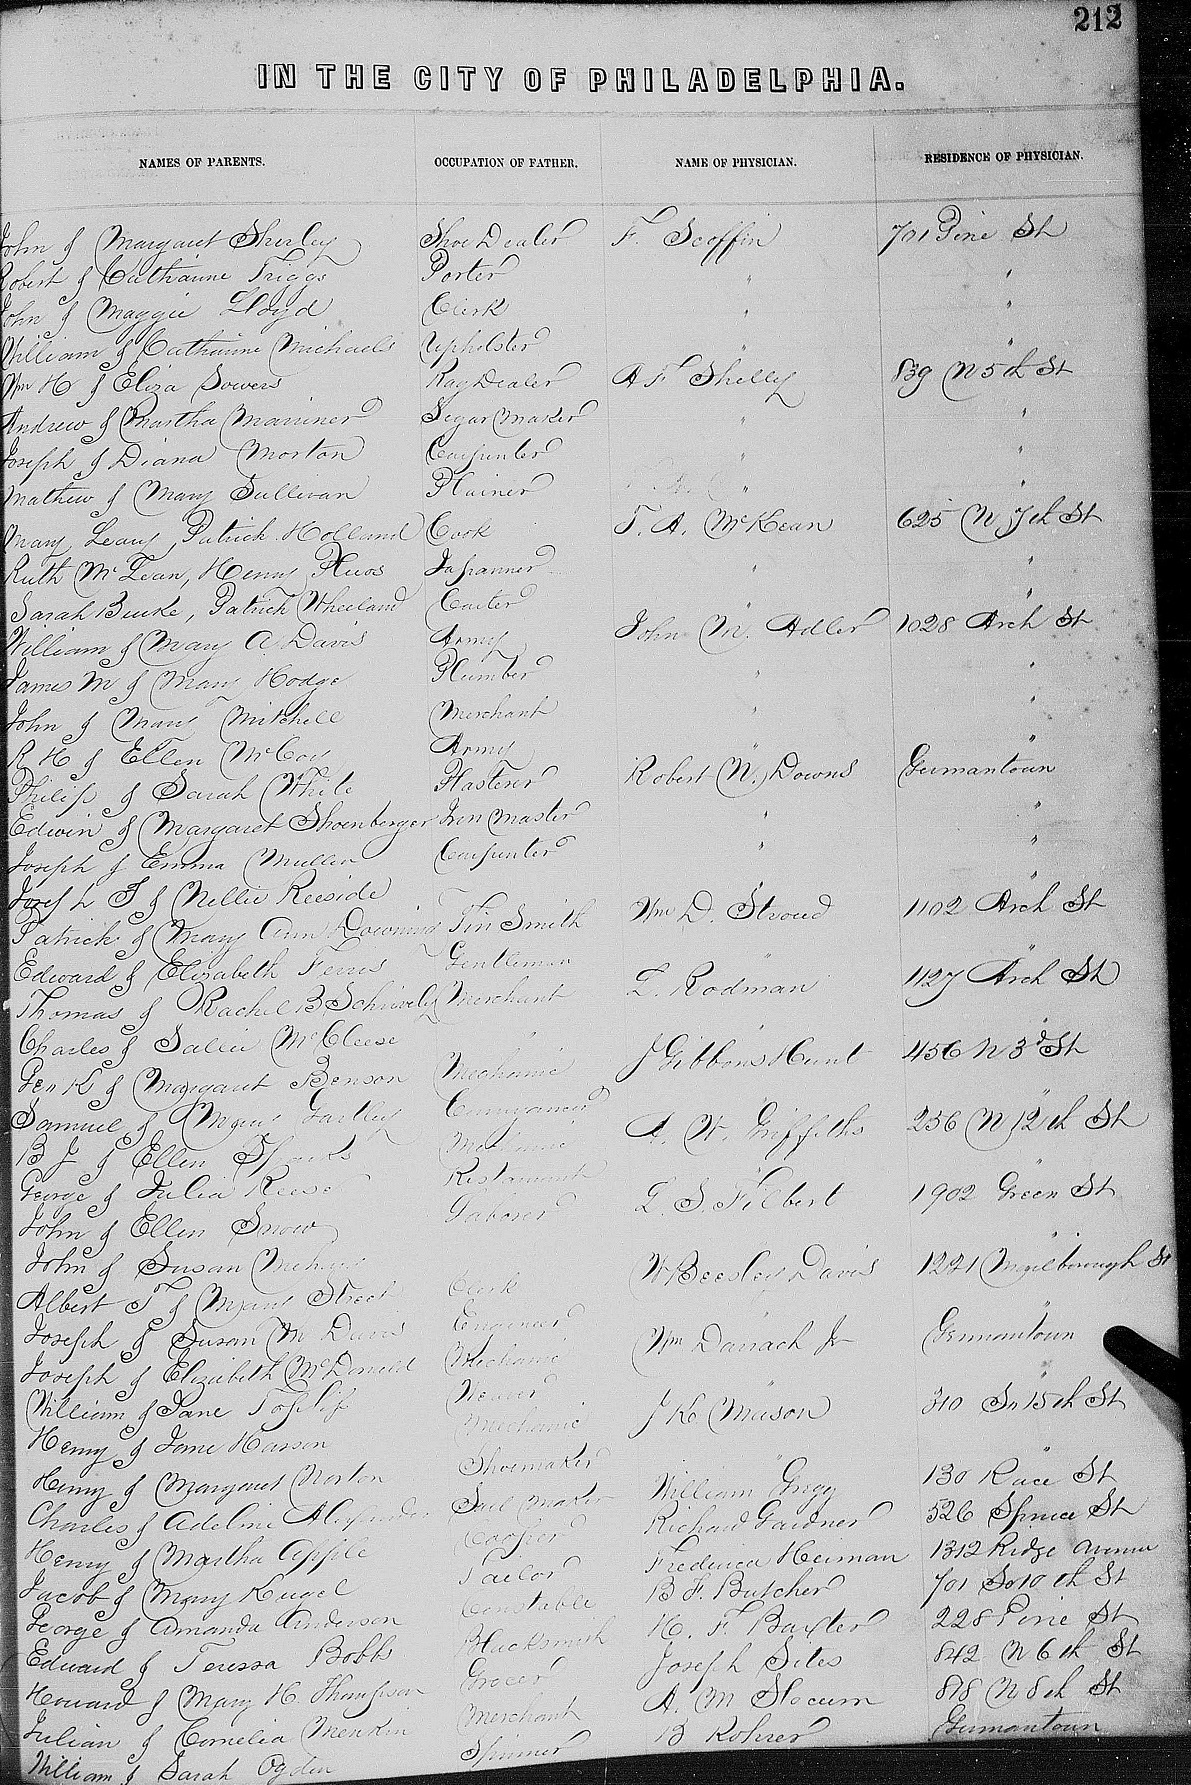 212
IN THE CITY OF PHILADELPHIA.
NAMES OF PARENTS. OCCUPATION OF FATHER. NAME OF PHYSICIAN. RESIDENCE OF PHYSICIAN.
John & Margaret Shirley Shoe Dealer F. Scoffin 701 Pine St
Robert & Catharine Triggs Porter " "
John & Maggie Lloyd Clerk " "
William & Catharine Michaels Upholster " "
Wm H & Eliza Sowers Rag Dealer A F Shelly 839 N 5th St
Andrew & Martha Marriner Segar Maker " "
Joseph & Diana Morton Carpenter " "
Mathew & Mary Sullivan Plainer " "
Mary Leary, Patrick Holland Cook T. A. McKean 625 N 7th St
Ruth McLean, Henry Japanner " "
Sarah Burke, Patrick Wheeland Carter "
William & Mary A. Davis Army John M. Adler 1028 Arch St
James M & Mary Hodge Plumber " "
John & Mary Mitchell Merchant " "
R H & Ellen McCoy Army " "
Philip & Sarah White Plasterer Robert N. Downs Germantown
Edwin & Margaret Shoenberger Iron Master " "
Joseph & Emma Muller Carpenter " "
Joseph & Nellie Reeside "
Patrick & Mary Ann Downing Tin Smith Wm D. Stroud 1102 Arch St
Edward & Elizabeth Ferris Gentleman " "
Thomas & Rachel B Merchant L. Rodman 1127 Arch St
Charles & Sallie McCleese " " "
Geo K & Margaret Benson Mechanic J Gibbons Hunt 456 N 3d St
Samuel & Mary Gartley Conveyancer " "
B J & Ellen Sparks Mechanic A. W. Griffiths 256 N 12th St
George & Julia Reese Restaurant " "
John & Ellen Snow Laborer L. S. Filbert 1902 Green St
John & Susan "
Albert T & Mary Street Clerk W Beesley Davis 1221 Marlborough St
Joseph & Susan M Davis Engineer " "
Joseph & Elizabeth McDonald Mechanic Wm Darrach Jr Germantown
William & Jane Toplif Weaver "
Henry & Jane Hanson Mechanic J K Mason 310 So 15th St
Henry & Margaret Norton Shoemaker " "
Charles & Adeline Alexander Sail Maker William Gregg 130 Race St
Henry & Martha Apple Cooper Richard Gardner 526 Spruce St
Jacob & Mary Kugel Tailor Frederica Herman 1312 Ridge Avenue
George & Amanda Anderson Constable B F. Butcher 701 So 10th St
Edward & Teressa Bobb Blacksmith H. F. Baxter 228 Pine St
Howard & Mary H. Thompson Grocer Joseph Sites 842 N 6th St
Julian & Cornelia Menkin Merchant A. M Slocum 818 N 8th St
William & Sarah Ogden Spinner B Rohrer Germantown